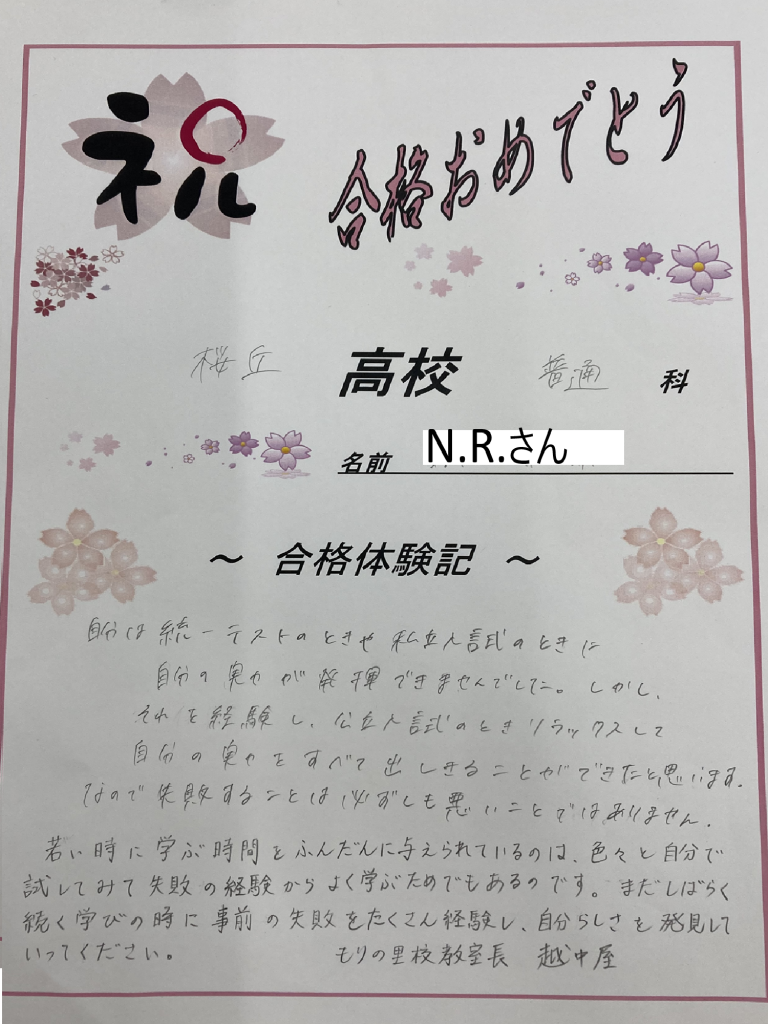 祝
合格おめでとう
桜丘 高校 普通 科
名前 N.R.さん
～ 合格体験記 ～
自分は統一テストのときや私立入試のときに
自分の実力が発揮できませんでした。しかし、
それを経験し、公立入試のときリラックスして
自分の実力をすべて出しきることができたと思います。
なので失敗することは必ずしも悪いことではありません。
若い時に学ぶ時間をふんだんに与えられているのは、色々と自分で
試してみて失敗の経験からよく学ぶためでもあるのです。まだしばらく
続く学びの時に事前の失敗をたくさん経験し、自分らしさを発見して
いってください。 もりの里校教室長 越中屋